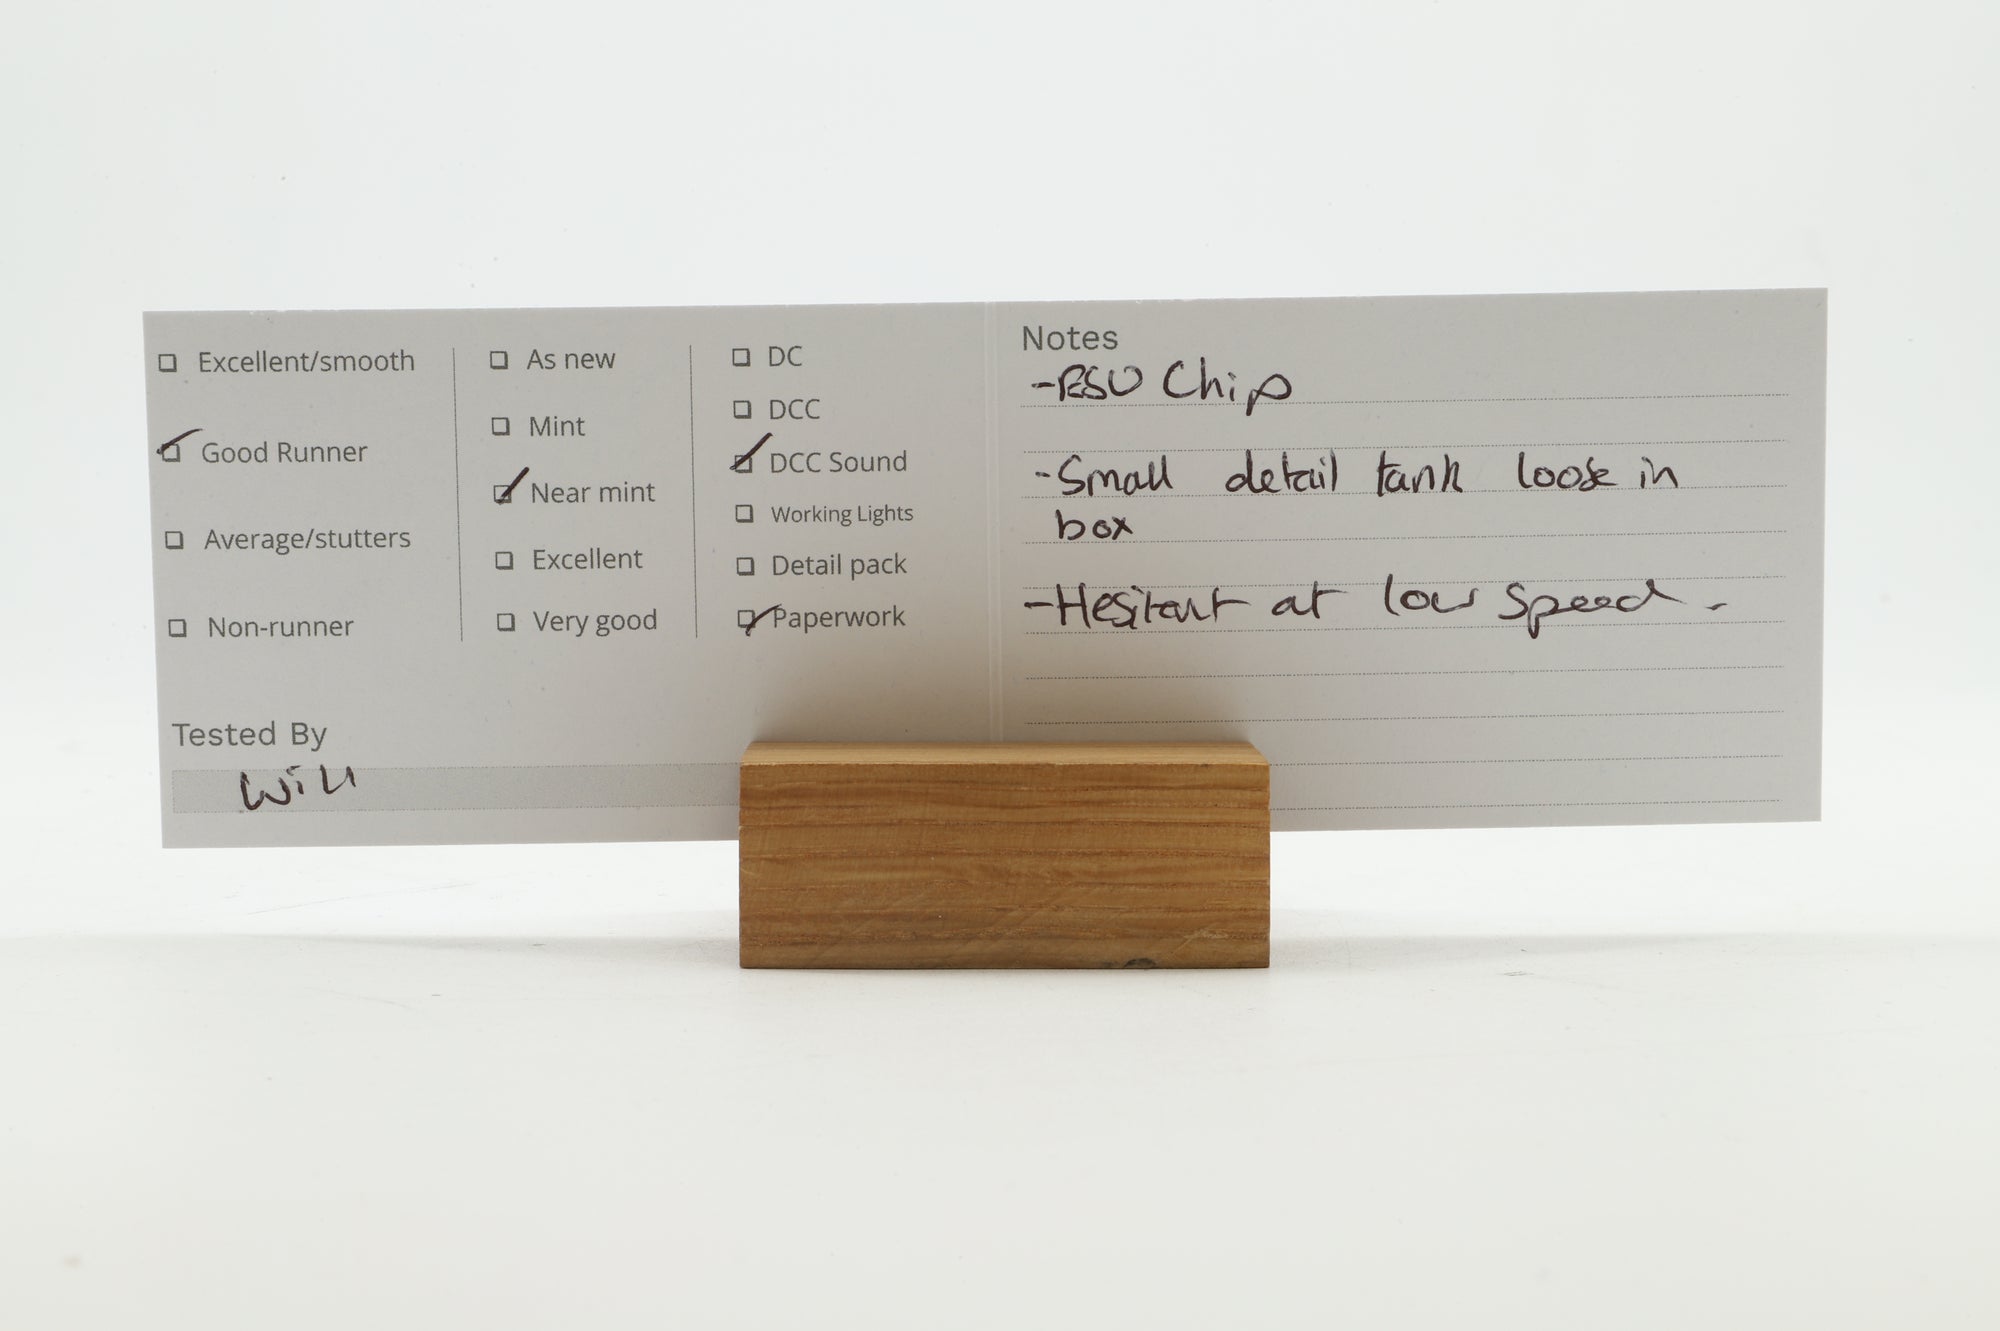 Excellent/smooth
Good Runner
Average/stutters
Non-runner
As new
Mint
Near mint
Excellent
Very good
DC
DCC
DCC Sound
Working Lights
Detail pack
Paperwork
Tested By
Will
Notes
-ESU Chip
-Small detail tank loose in
box
-Hesitant at low speed.